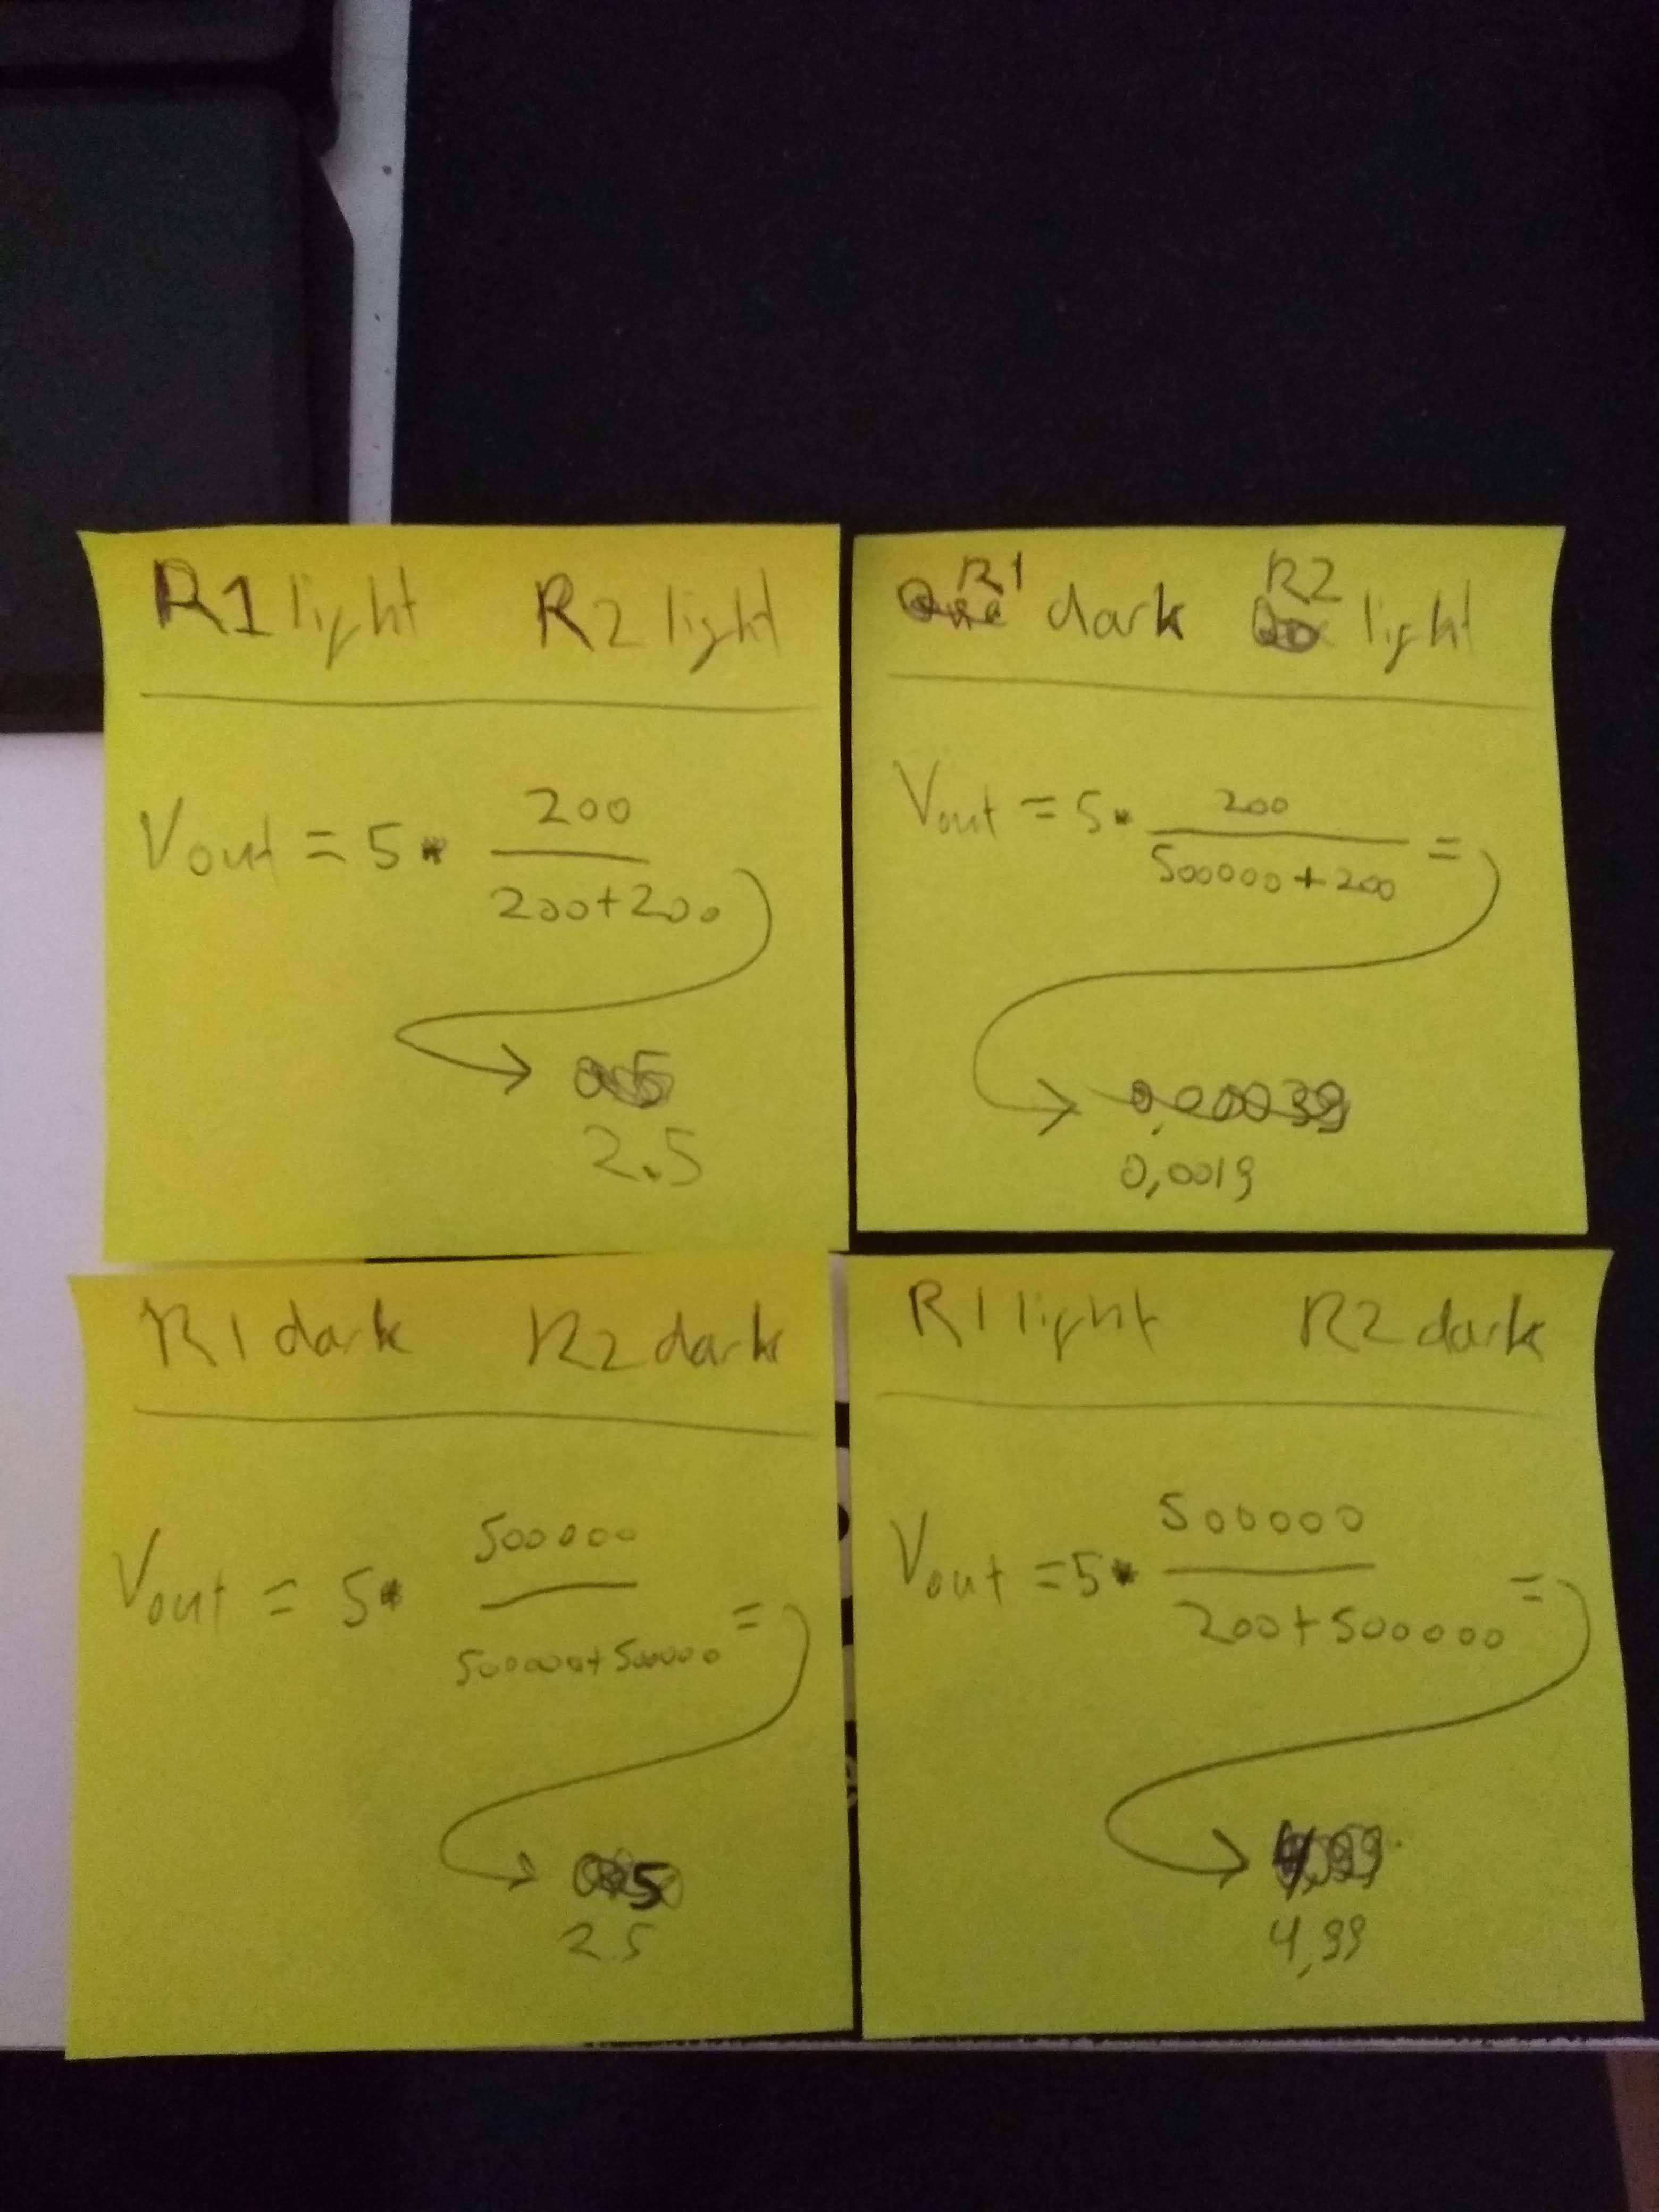 R1 light R2 light
Vout = 5*
200
200+200
2.5
R1 R2
dark light
Vout = 5*
200
=
500000+200
0,00039
0,0019
R1 dark R2 dark
Vout = 5*
500000
=
500000+500000
2.5
R1 light R2 dark
Vout =5*
500000
=
200+500000
4,99